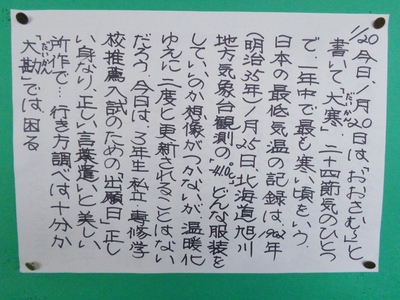 1/20 今日1月20日は、「おおさむ〜」と
書いて「大寒」。二十四節気のひとつ
で、一年中で最も寒い頃をいう。
日本の最低気温の記録は1902年
(明治35年)1月25日、北海道旭川
地方気象台観測の-41.0℃。どんな服装を
していいのか想像がつかないが、温暖化
ゆえに二度と更新されることはない
だろう。今日は、3年生私立・専修学
校推薦入試のための「出願日」。正し
い身なり、正しい言葉遣いと美しい
所作で…行き方調べは十分か
「大勘」では困る
だいかん
だいかん